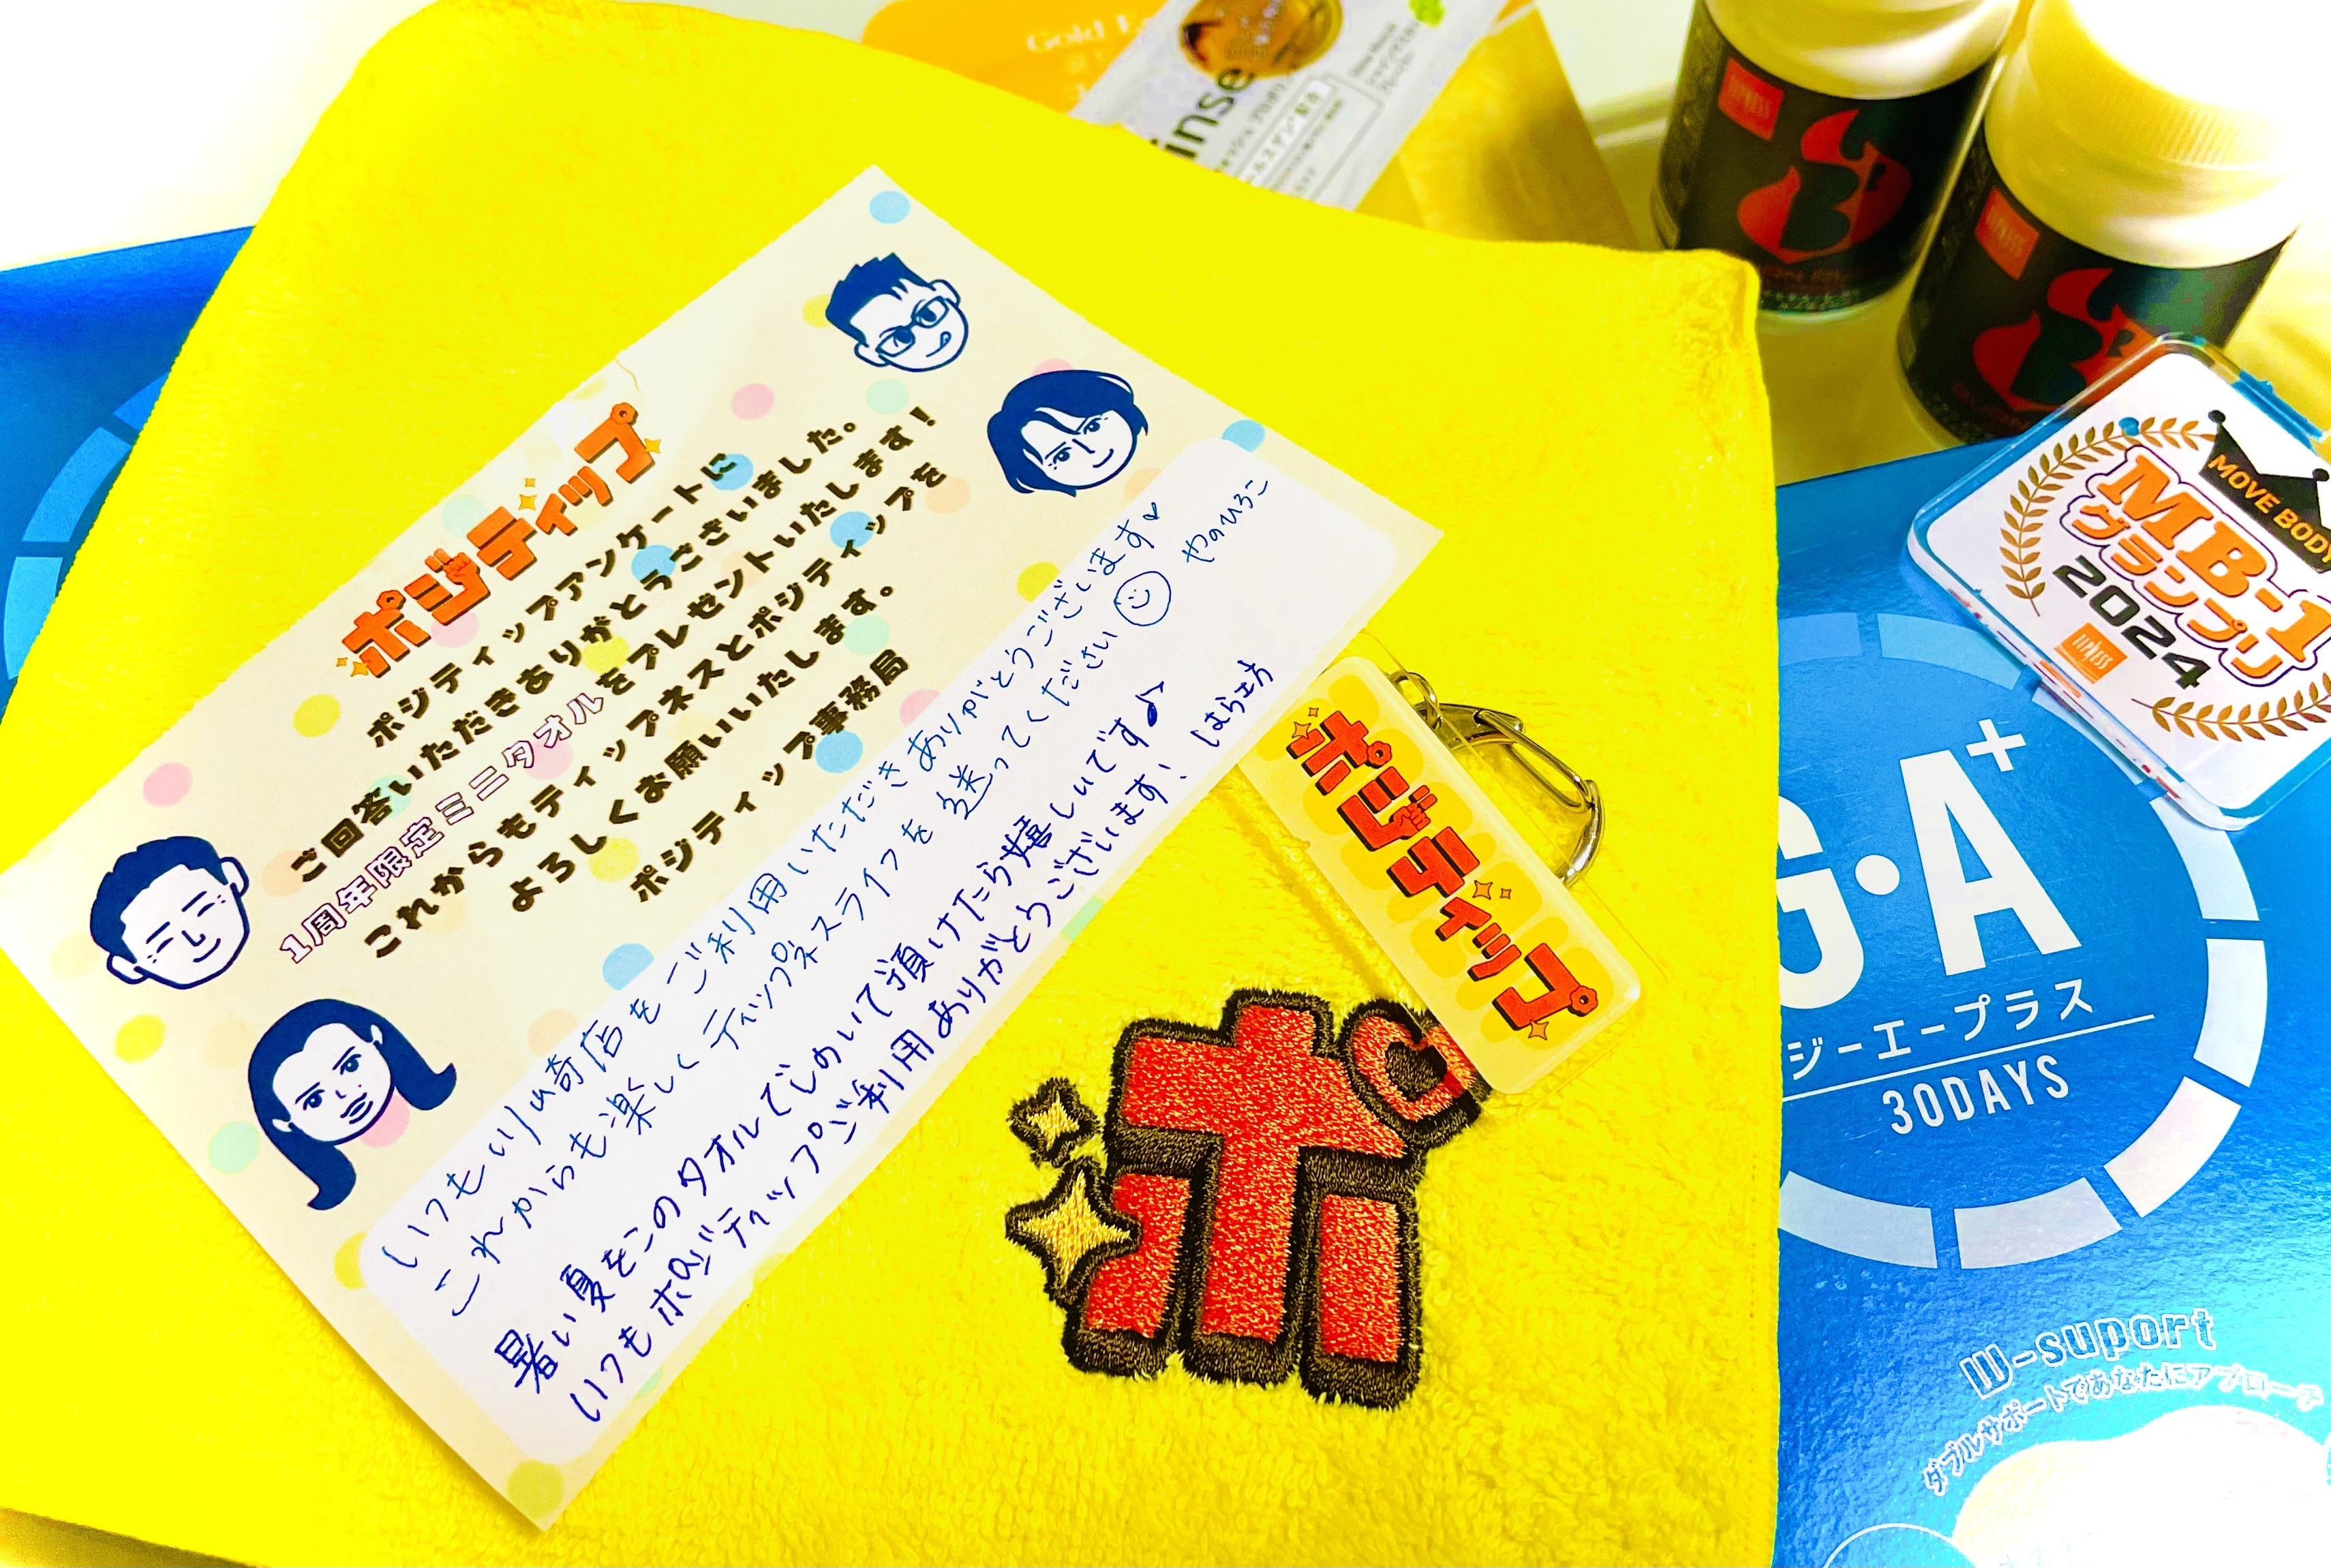 ポジティップ
ポジティップアンケートに
ご回答いただきありがとうございました。
1周年限定ミニタオルをプレゼントいたします!
これからもティップネスとポジティップを
よろしくお願いいたします。
ポジティップ事務局
いつも川崎店をご利用いただきありがとうございます♡
これからも楽しくティップネスライフを送ってください☺ やのひろこ
暑い夏をこのタオルでしのいで頂けたら嬉しいです♪
いつもポジティップご利用ありがとうございます!
ポジティップ
ポ
Gold
inse
MOVE BODY
MB-1
グランプリ
2024
TIPNESS
G・A+
ジーエープラス
30DAYS
W-suport
ダブルサポートであなたにアプローチ